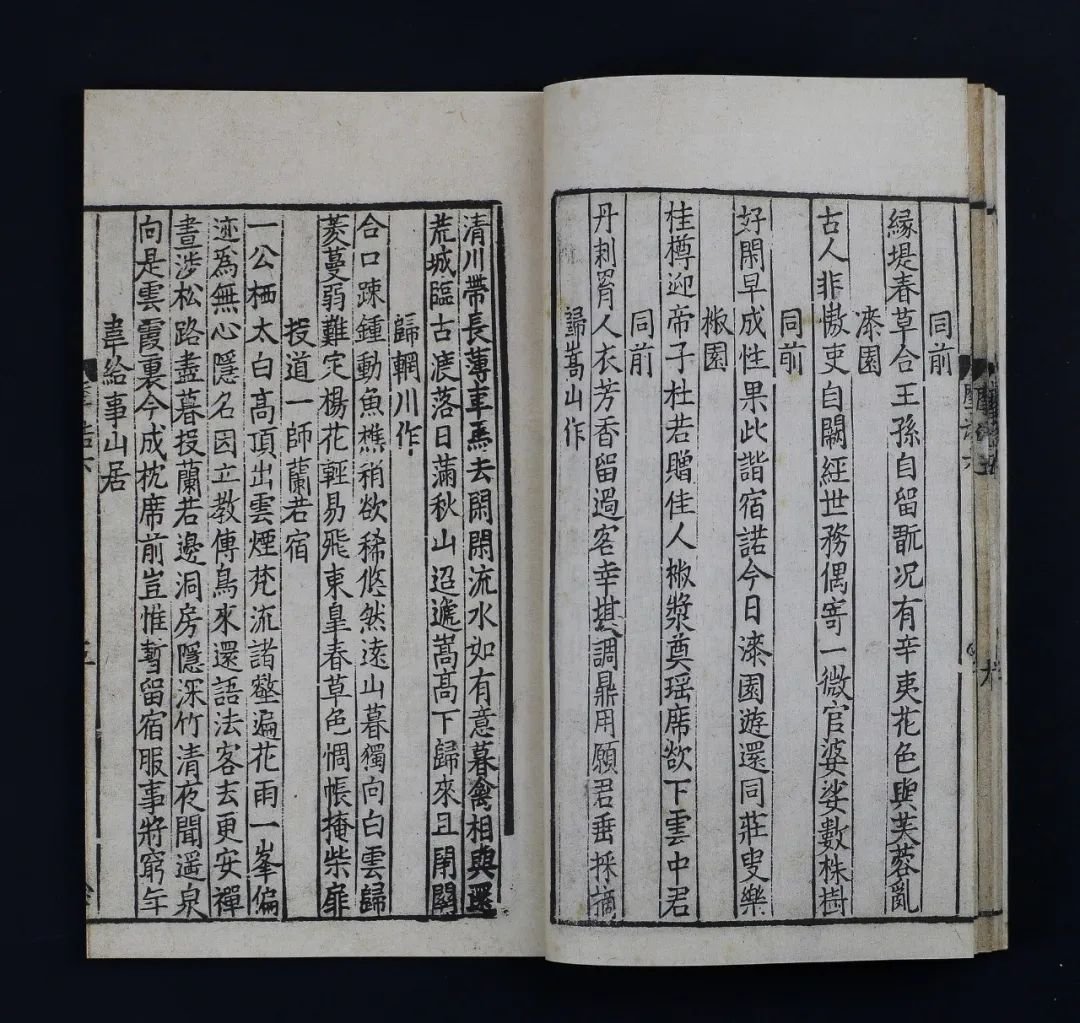 同前
緣堤春草合王孫自留翫况有辛夷花色與芙蓉亂
漆園
古人非傲吏自闕經世務偶寄一微官婆娑數株樹
同前
好閑早成性果此諧宿諾今日漆園遊還同莊叟樂
椒園
桂樽迎帝子杜若贈佳人椒漿奠瑶席欲下雲中君
同前
丹刺罥人衣芳香留過客幸堪調鼎用願君垂採摘
歸嵩山作
清川帶長薄車馬去閑閑流水如有意暮禽相與還
荒城臨古渡落日滿秋山迢遞嵩高下歸來且閉關
歸輞川作
谷口疎鍾動魚樵稍欲稀悠然遠山暮獨向白雲歸
菱蔓弱難定楊花輕易飛東皐春草色惆悵掩柴扉
投道一師蘭若宿
一公栖太白高頂出雲煙梵流諸壑遍花雨一峯偏
迹爲無心隱名因立教傳鳥來還語法客去更安禪
晝涉松路盡暮投蘭若邊洞房隱深竹清夜聞遥泉
向是雲霞裏今成枕席前豈惟暫留宿服事將窮年
韋給事山居